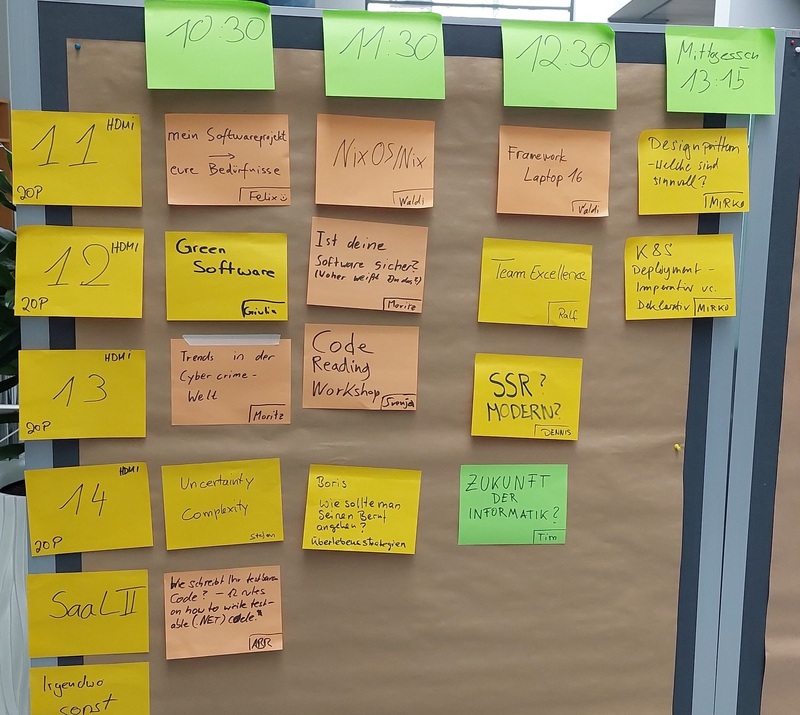 10:30
11:30
12:30
Mittagessen
13:15
11 HDMI
20P
mein Softwareprojekt
→
eure Bedürfnisse
Felix
NixOS/Nix
Waldi
Framework
Laptop 16
Waldi
Designpattern
-Welche sind
sinnvoll?
MIRKO
12 HDMI
20P
Green
Software
Giulia
Ist deine
Software sicher?
(Woher weißt Du das?)
Moritz
Team Excellence
Ralf
K8S
Deployment -
Imperativ vs.
Deklarativ MIRKO
13 HDMI
20P
Trends in der
Cybercrime-
Welt
Moritz
Code
Reading
Workshop
Svenja
SSR?
MODERN?
DENNIS
14 HDMI
20P
Uncertainty
Complexity
Stefan
Boris
Wie sollte man
seinen Beruf
angehen?
Überlebensstrategien
ZUKUNFT
DER
INFORMATIK?
Tim
SaaL II
Wie schreibt Ihr testbaren
Code? - 12 rules
on how to write test-
able (.NET) code."
Irgendwo
sonst